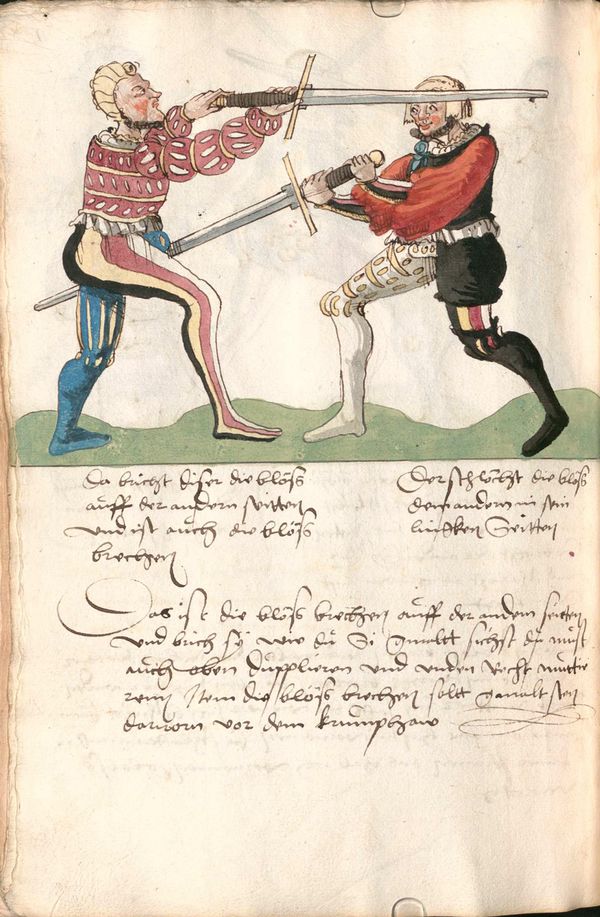 Da bricht diser die blöss
auff der andern seitten
und ist auch die blöss
brechen
Der schlöcht die blöss
dem andern in sein
linckken Seitten
Das ist die blöss brechen auff der andern seitten
und brich sy wie dü Si gmaltt sichst dü must
auch oben düpplieren und unden Recht mutte
renn Item die blöss brechen soltt gmalt sten
darvorn vor dem krümphaw